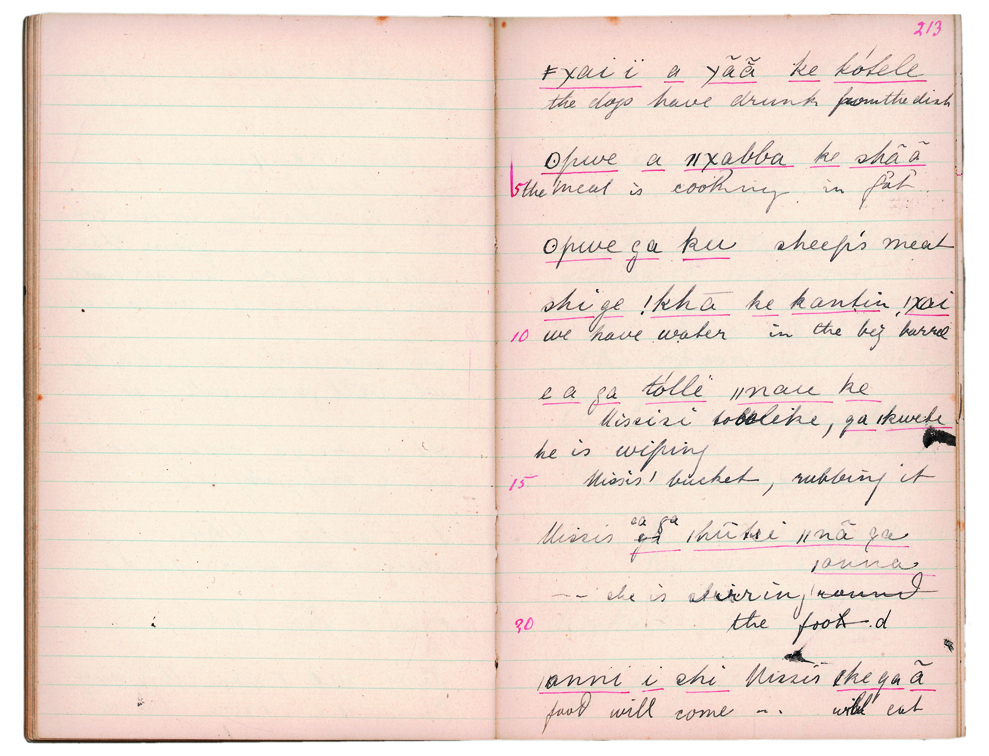 213
ǂxai ï a xãã ke tótele
the dogs have drunk from the dish
ʘpwe a ǁxabba ke shãã
5 the meat is cooking in fat
ʘpwe ga ku sheep's meat
shi ge !khā ke kantin !xai
10 we have water in the big barrel
e a ga tóllë ǁnau ke
Missisi ga
he is wiping
15 Missis' bucket, rubbing it
Missis ea ga ǀhūtsi ǁnā ga
ǀanna
-- she is stirring round
20 the food
ǀanni i shi Missis
food will come -- will eat